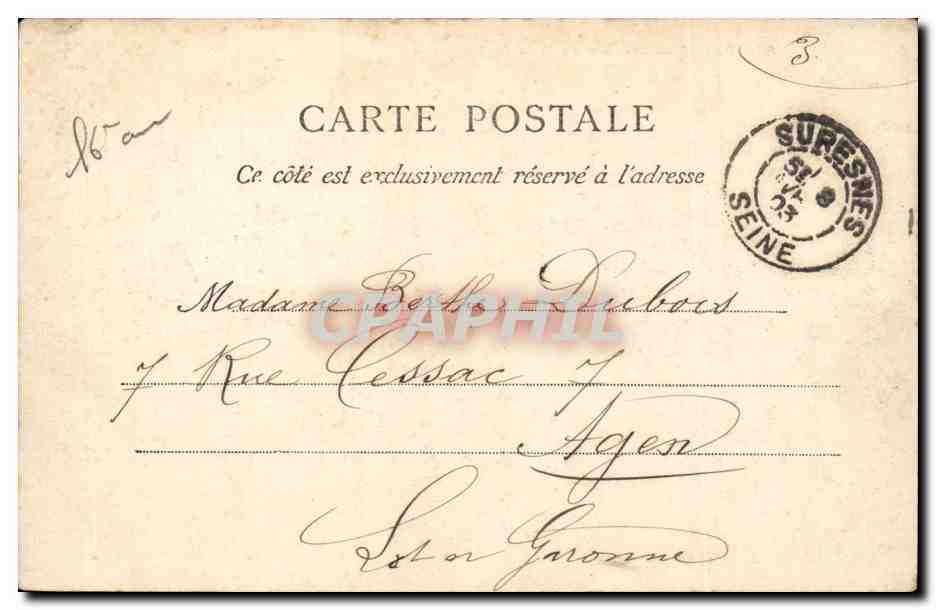 3
CARTE POSTALE
Ce côté est exclusivement réservé à l'adresse
SURESNES
8
03
SEINE
Madame Berthe Dubois
CPAPHIL
7 Rue Cessac 7
Agen
Lot et Garonne